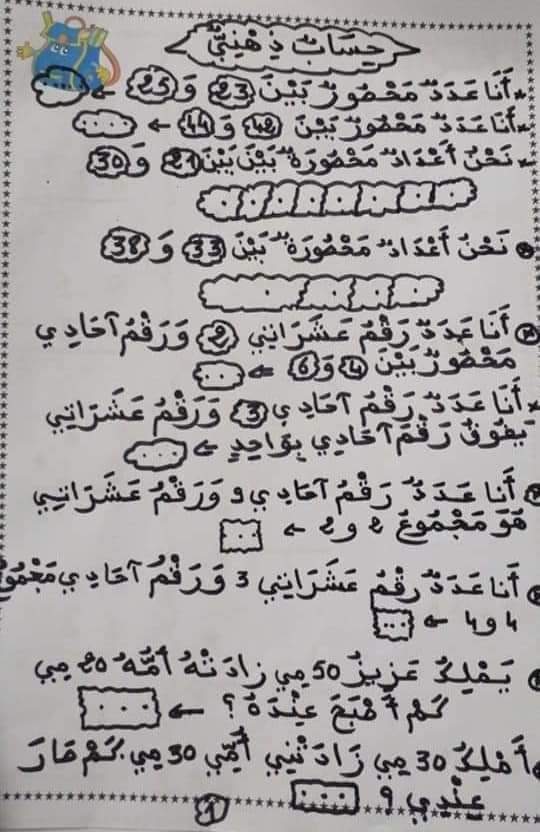 حِسَابٌ ذِهْنِيٌّ
* أَنَا عَدَدٌ مَحْصُورٌ بَيْنَ 23 وَ 25 ←
* أَنَا عَدَدٌ مَحْصُورٌ بَيْنَ 42 وَ 44 ← ...
* نَحْنُ أَعْدَادٌ مَحْصُورَةٌ بَيْنَ بَيْنَ 21 وَ 30
نَحْنُ أَعْدَادٌ مَحْصُورَةٌ بَيْنَ 33 وَ 38
أَنَا عَدَدٌ رَقْمُ عَشَرَاتِي 2 وَرَقْمُ آحَادِي
مَحْصُورٌ بَيْنَ 4 وَ 6 ← ...
* أَنَا عَدَدٌ رَقْمُ آحَادِي 3 وَرَقْمُ عَشَرَاتِي
يَفُوقُ رَقْمَ آحَادِي بِوَاحِدٍ ← ...
أَنَا عَدَدٌ رَقْمُ آحَادِي 9 وَرَقْمُ عَشَرَاتِي
هُوَ مَجْمُوعُ 2 و 2 ← ...
أَنَا عَدَدٌ رَقْمُ عَشَرَاتِي 3 وَرَقْمُ آحَادِي مَجْمُوعُ
4 و 4 ← ...
يَمْلِكُ عَزِيزٌ 50 مي زَادَتْهُ أُمُّهُ 20 مي
كَمْ أَصْبَحَ عِنْدَهُ؟ ← ...
أَمْلِكُ 30 مي زَادَتْنِي أُمِّي 30 مي. كَمْ صَارَ
عِنْدِي؟ ...
1